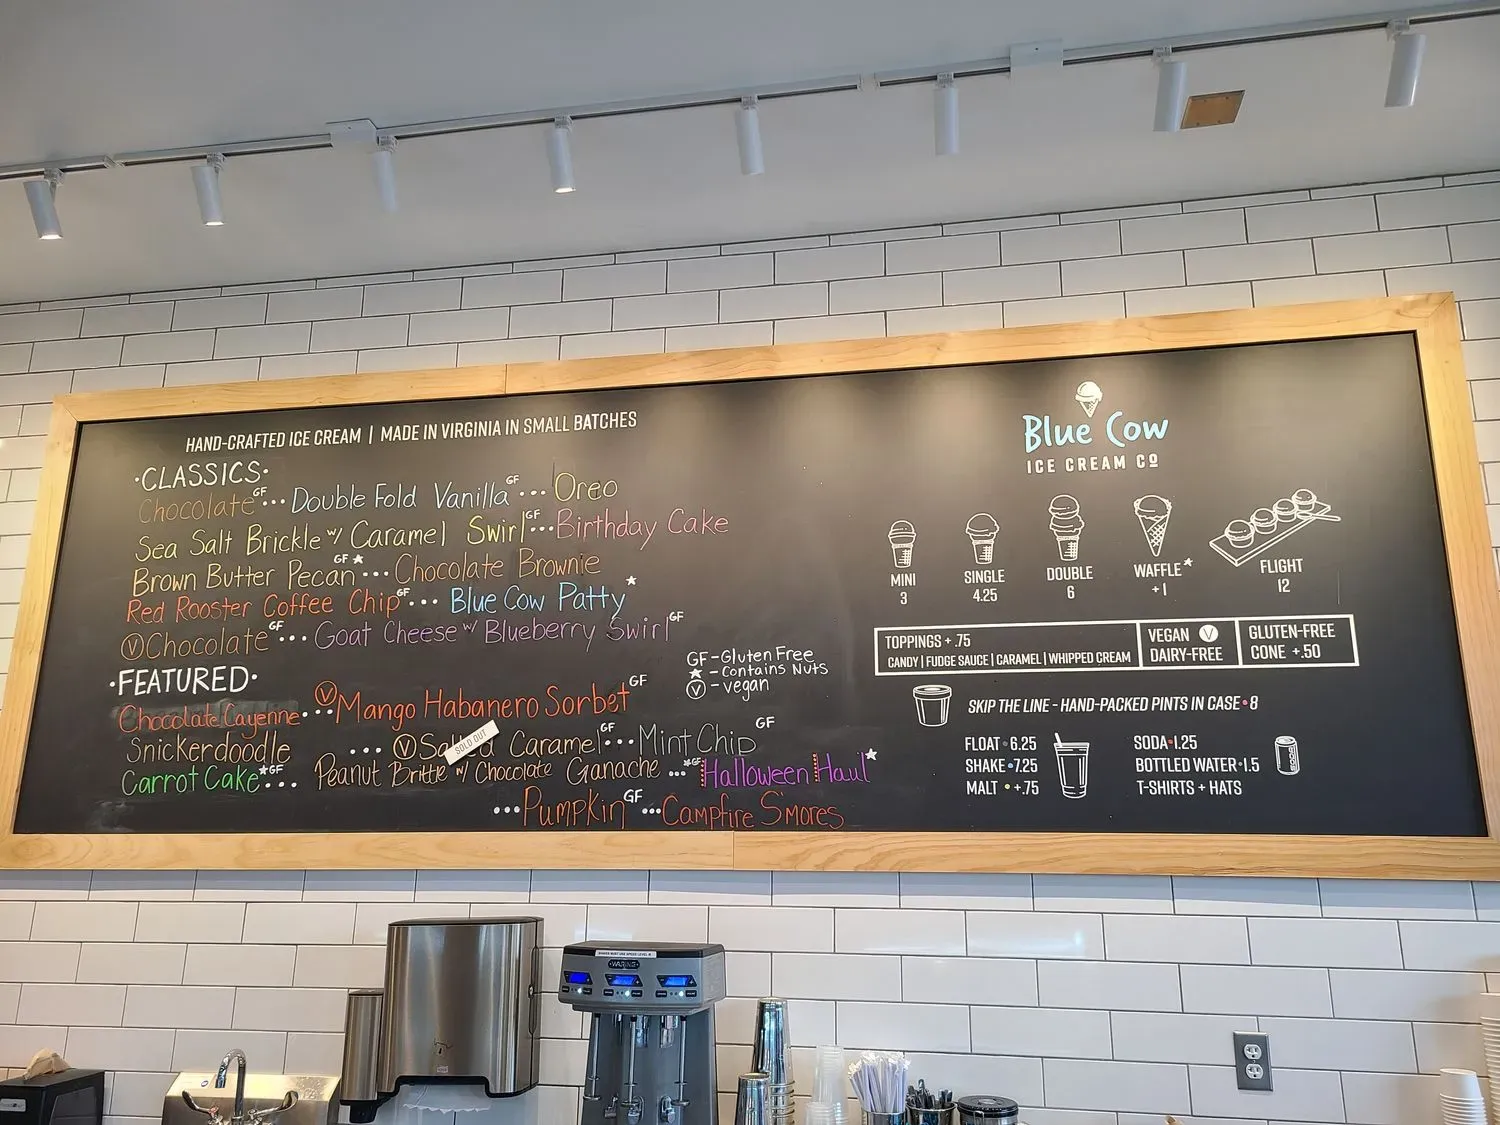 HAND-CRAFTED ICE CREAM | MADE IN VIRGINIA IN SMALL BATCHES
·CLASSICS·
Chocolate GF ... Double Fold Vanilla GF ... Oreo
Sea Salt Brickle w/ Caramel Swirl GF ... Birthday Cake
Brown Butter Pecan GF ★ ... Chocolate Brownie
Red Rooster Coffee Chip GF ... Blue Cow Patty ★
Ⓥ Chocolate GF ... Goat Cheese w/ Blueberry Swirl GF
GF - Gluten Free
★ - Contains Nuts
Ⓥ - vegan
·FEATURED·
Chocolate Cayenne ... Ⓥ Mango Habanero Sorbet GF
Snickerdoodle ... Ⓥ Salted Caramel GF ... Mint Chip GF
SOLD OUT
Carrot Cake ★ GF ... Peanut Brittle w/ Chocolate Ganache ... ★ GF Halloween Haul ★
... Pumpkin GF ... Campfire S'mores
Blue Cow
ICE CREAM CO
MINI
3
SINGLE
4.25
DOUBLE
6
WAFFLE*
+1
FLIGHT
12
TOPPINGS + .75
CANDY | FUDGE SAUCE | CARAMEL | WHIPPED CREAM
VEGAN Ⓥ
DAIRY-FREE
GLUTEN-FREE
CONE +.50
SKIP THE LINE - HAND-PACKED PINTS IN CASE • 8
FLOAT • 6.25
SHAKE • 7.25
MALT • +.75
SODA • 1.25
BOTTLED WATER • 1.5
T-SHIRTS + HATS
SODA
WARING